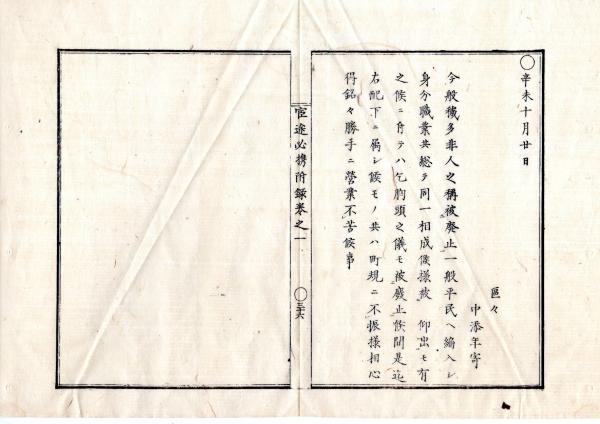 〇辛未十月廿日
區々
中添年寄
今般穢多非人之稱被廢止一般平民ヘ編入シ
身分職業共總テ同一相成候樣被 仰出モ有
之候ニ付テハ乞胸頭之儀モ被廢止候間是迄
右配下ニ属シ候モノ共ハ町規ニ不振樣相心
得銘々勝手ニ營業不苦候事
官途必携附録巻之一
〇三十六